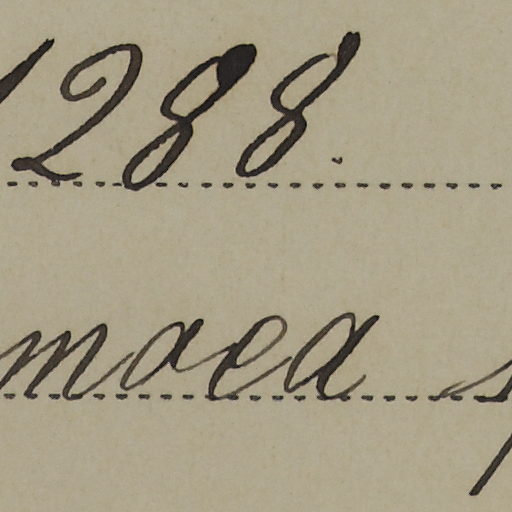 1288.
maea